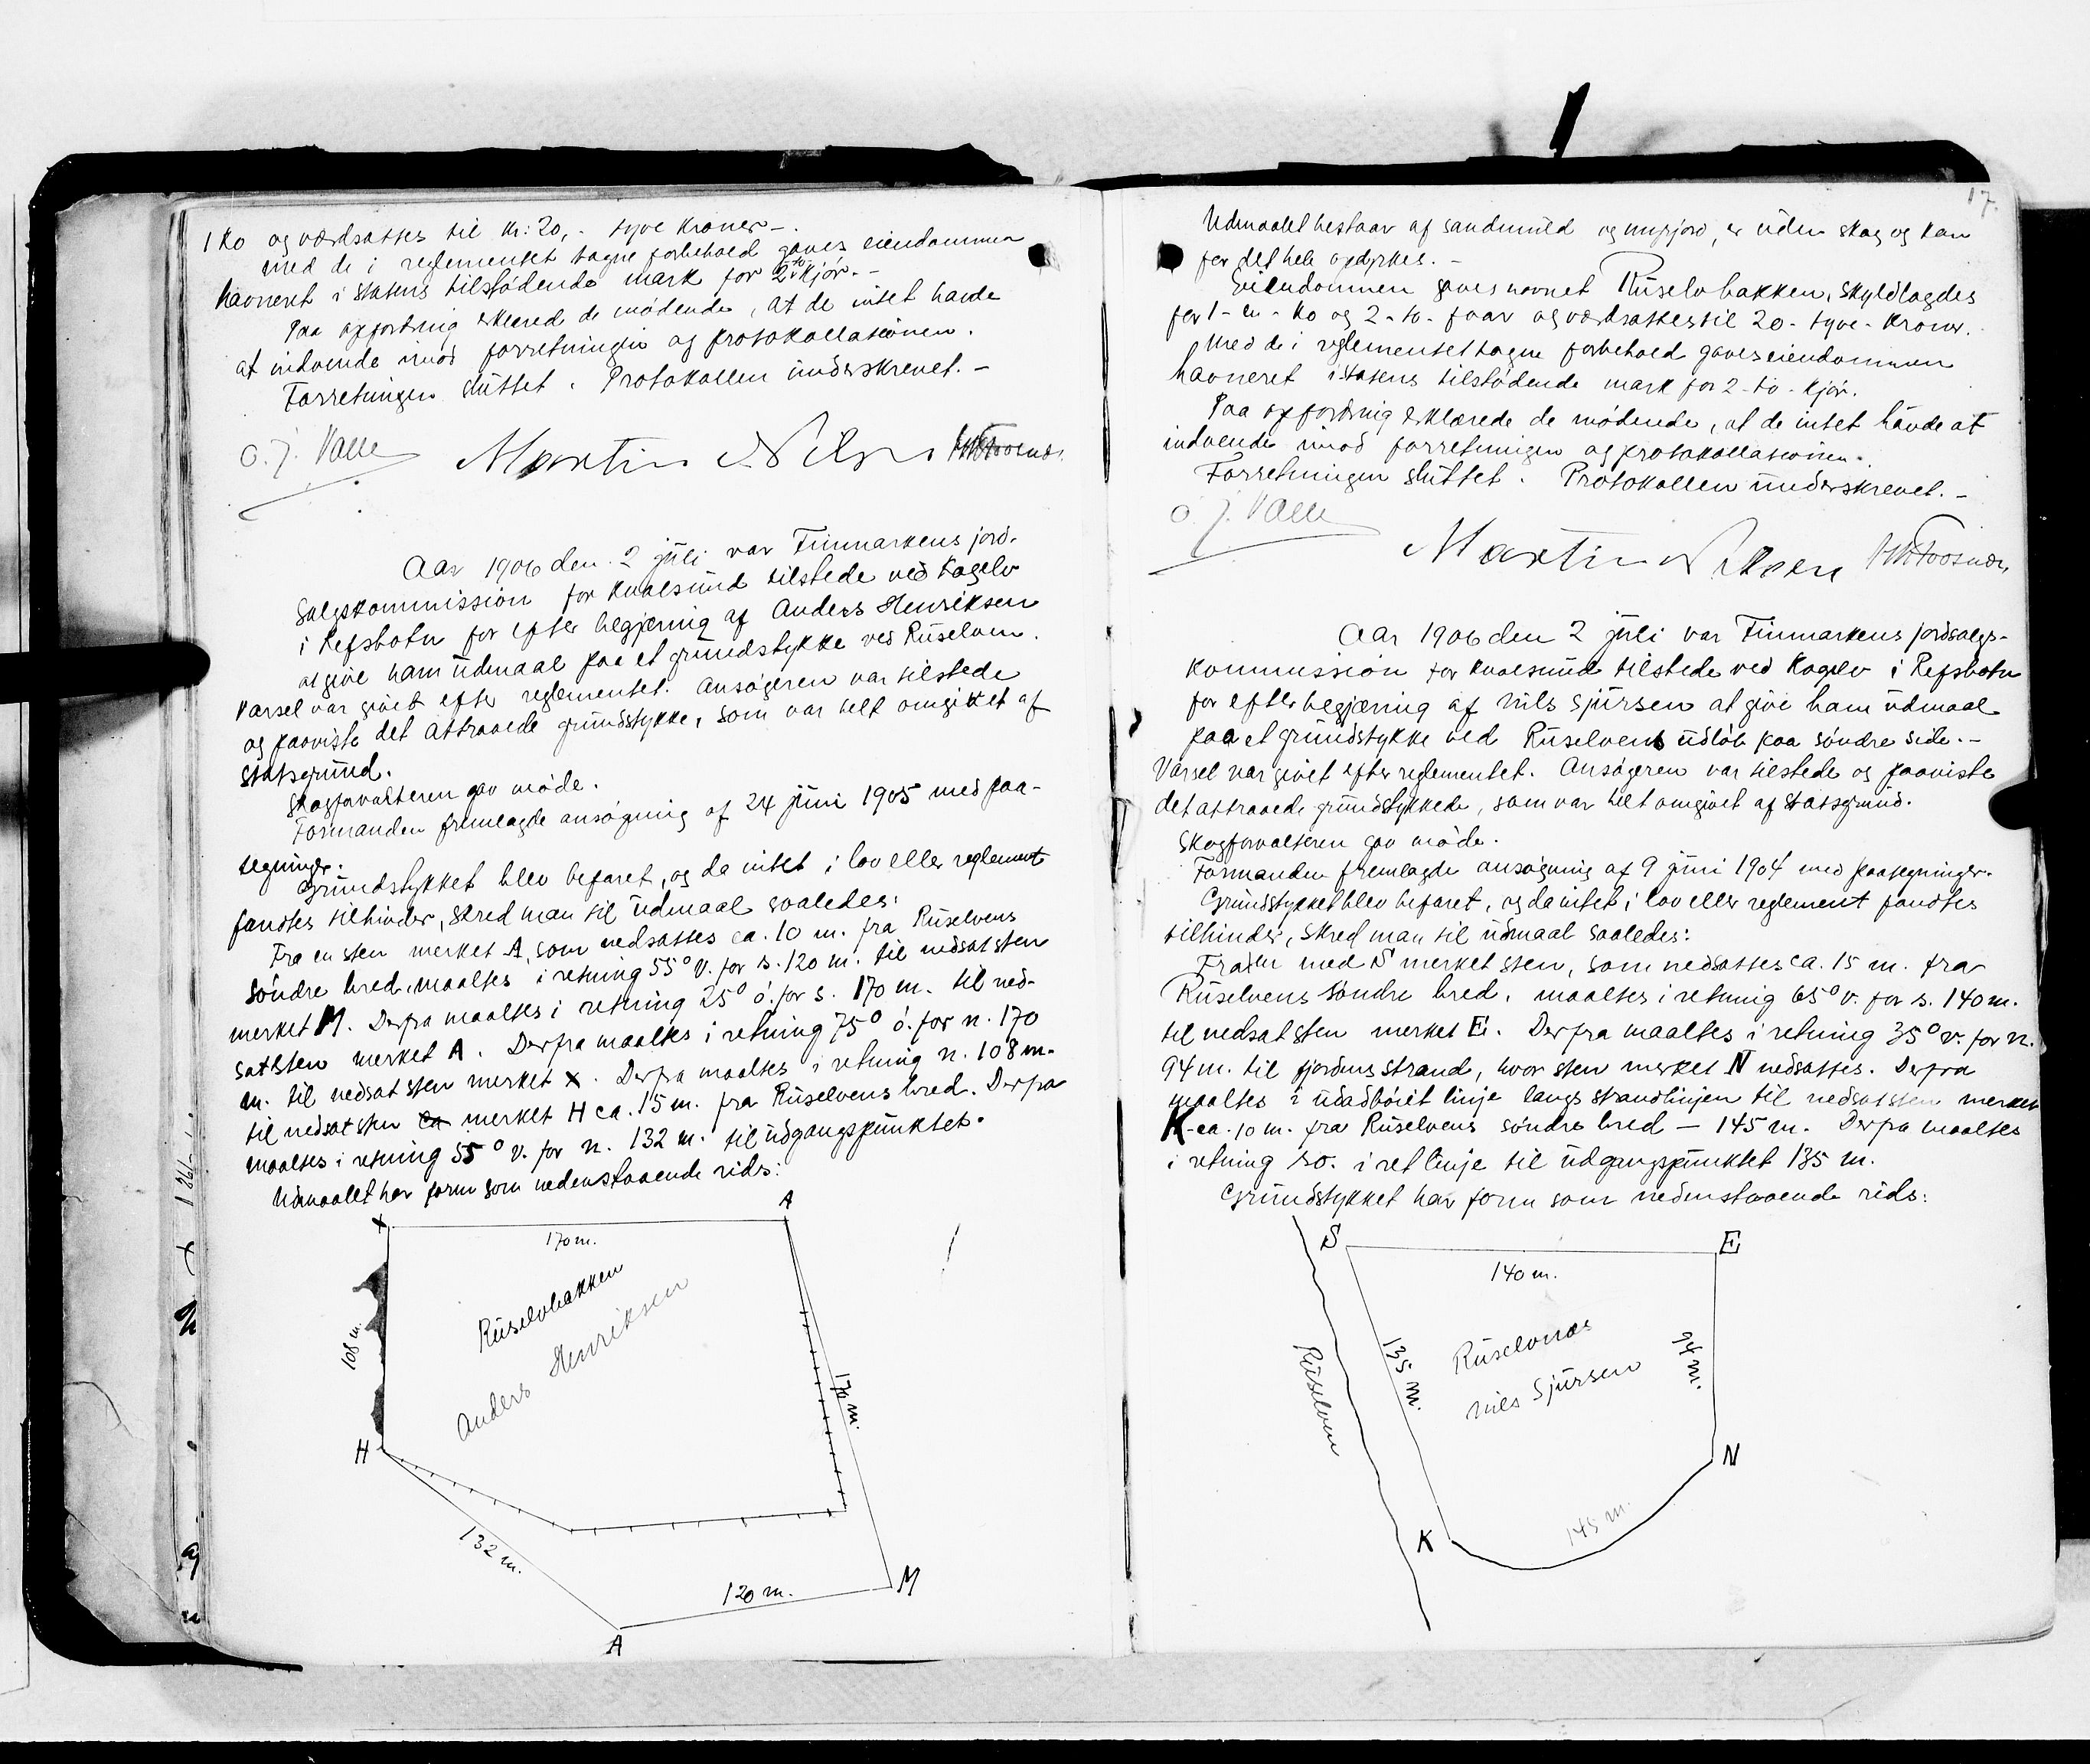 1 ko og værdsattes til kr: 20,- tyve kroner -.
Med de i reglementet tagne forbehold gaves eiendommen
havneret i statens tilstødende mark for 2-to-kjør. -
Paa opfordring erklæred de mødende, at de intet havde
at indvende imod forretningen og protokollationen.
Forretningen sluttet. Protokollen underskrevet. -
O. J. Valle Martin Nilsen
Aar 1906 den 2 juli var Finmarkens jord-
salgskommission for Kvalsund tilstede ved Kogelv
i Refsbotn for efter begjæring af Anders Henriksen
at give ham udmaal paa et grundstykke ved Ruselven.
Varsel var givet efter reglementet. Ansøgeren var tilstede
og paaviste det attraaede grundstykke, som var helt omgivet af
statsgrund.
Skogforvalteren gav møde.
Formanden fremlagde ansøgning af 24 juni 1905 med paa-
tegninger.
Grundstykket blev befaret, og da intet i lov eller reglement
fandtes tilhinder, skred man til udmaal saaledes:
Fra en sten merket A, som nedsattes ca. 10 m. fra Ruselvens
søndre bred, maaltes i retning 55° v. for s. 120 m. til nedsat sten
merket M. Derfra maaltes i retning 25° ø. for s. 170 m. til ned-
sat sten merket A. Derfra maaltes i retning 75° ø. for n. 170
m. til nedsat sten merket X. Derfra maaltes i retning n. 108 m.
til nedsat sten ca merket H ca. 15 m. fra Ruselvens bred. Derfra
maaltes i retning 55° v. for n. 132 m. til udgangspunktet.
Udmaalet har form som nedenstaaende rids:
X
A
170 m.
Ruselvbakken
Anders Henriksen
108 m.
170 m.
H
132 m.
120 m.
M
A
17.
Udmaalet bestaar af sandmuld og myrjord, er uden skog og kan
for det hele opdyrkes. -
Eiendommen gaves navnet Ruselvbakken, skyldlagdes
for 1-en-ko og 2-to-faar og værdsattes til 20-tyve-kroner.
Med de i reglementet tagne forbehold gaves eiendommen
havneret i statens tilstødende mark for 2-to-kjør.
Paa opfordring erklærede de mødende, at de intet havde at
indvende imod forretningen og protokollationen.
Forretningen sluttet. Protokollen underskrevet. -
O. J. Valle Martin Nilsen
Aar 1906 den 2 juli var Finmarkens jordsalgs-
kommission for Kvalsund tilstede ved Kogelv i Refsbotn
for efter begjæring af Nils Sjursen at give ham udmaal
paa et grundstykke ved Ruselvens udløb paa søndre side. -
Varsel var givet efter reglementet. Ansøgeren var tilstede og paaviste
det attraaede grundstykkede, som var helt omgivet af statsgrund.
Skogforvalteren gav møde.
Formanden fremlagde ansøgning af 9 juni 1904 med paategninger.
Grundstykket blev befaret, og da intet i lov eller reglement fandtes
tilhinder, skred man til udmaal saaledes:
Fra en med S merket sten, som nedsattes ca. 15 m. fra
Ruselvens søndre bred, maaltes i retning 65° v. for s. 140 m.
til nedsat sten merket E. Derfra maaltes i retning 35° v. for n.
94 m. til fjordens strand, hvor sten merket N nedsattes. Derfra
maaltes i udadbøiet linje langs strandlinjen til nedsat sten merket
K - ca. 10 m. fra Ruselvens søndre bred - 145 m. Derfra maaltes
i retning so. i ret linje til udgangspunktet 135 m.
Grundstykket har form som nedenstaaende rids:
S
E
140 m.
Ruselven
135 m.
Ruselvnæs
Nils Sjursen
94 m.
N
K
145 m.